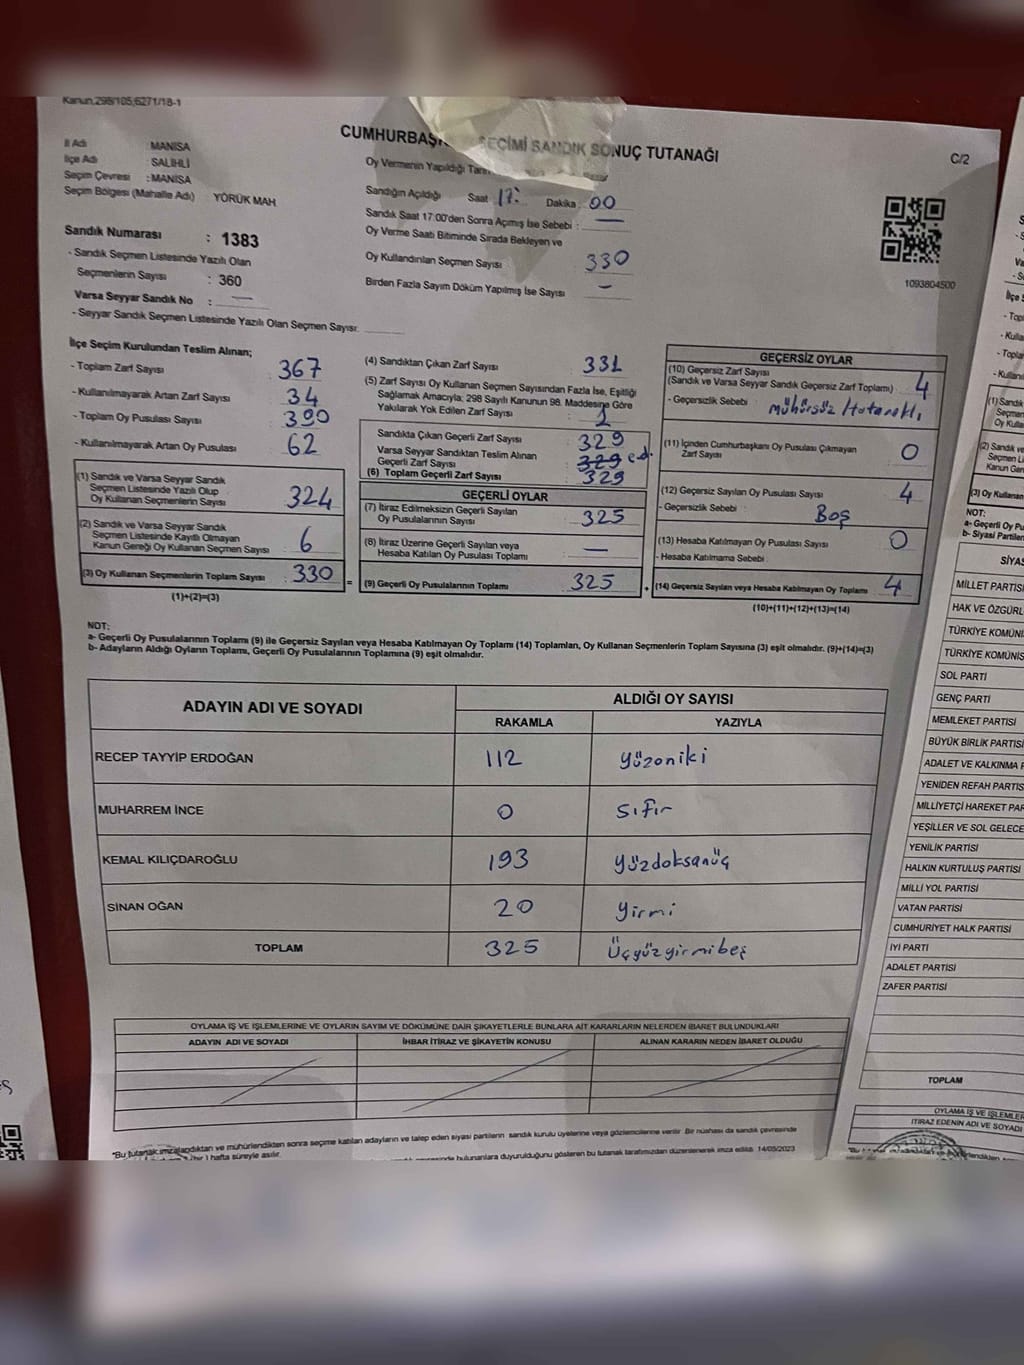 Kanun,298/105,6271/18-1
CUMHURBAŞ SEÇİMİ SANDIK SONUÇ TUTANAĞI
C/2
İl Adı : MANİSA
İlçe Adı : SALİHLİ
Seçim Çevresi : MANİSA
Seçim Bölgesi (Mahalle Adı) YÖRÜK MAH
Sandık Numarası : 1383
- Sandık Seçmen Listesinde Yazılı Olan
Seçmenlerin Sayısı : 360
Varsa Seyyar Sandık No : —
- Seyyar Sandık Seçmen Listesinde Yazılı Olan Seçmen Sayısı:
Oy Vermenin Yapıldığı
Sandığın Açıldığı Saat 17: Dakika : 00
Sandık Saat 17:00'den Sonra Açımış İse Sebebi : —
Oy Verme Saati Bitiminde Sırada Bekleyen ve
Oy Kullandırılan Seçmen Sayısı 330
Birden Fazla Sayım Döküm Yapılmış İse Sayısı —
1093804500
İlçe Seçim Kurulundan Teslim Alınan;
- Toplam Zarf Sayısı 367
- Kullanılmayarak Artan Zarf Sayısı 34
- Toplam Oy Pusulası Sayısı 390
- Kullanılmayarak Artan Oy Pusulası 62
(1) Sandık ve Varsa Seyyar Sandık
Seçmen Listesinde Yazılı Olup
Oy Kullanan Seçmenlerin Sayısı 324
(2) Sandık ve Varsa Seyyar Sandık
Seçmen Listesinde Kayıtlı Olmayan
Kanun Gereği Oy Kullanan Seçmen Sayısı 6
(3) Oy Kullanan Seçmenlerin Toplam Sayısı 330
(1)+(2)=(3)
=
(4) Sandıktan Çıkan Zarf Sayısı 331
(5) Zarf Sayısı Oy Kullanan Seçmen Sayısından Fazla İse, Eşitliği
Sağlamak Amacıyla; 298 Sayılı Kanunun 98. Maddesine Göre
Yakılarak Yok Edilen Zarf Sayısı
Sandıkta Çıkan Geçerli Zarf Sayısı 329
Varsa Seyyar Sandıktan Teslim Alınan
Geçerli Zarf Sayısı 329
(6) Toplam Geçerli Zarf Sayısı 329
GEÇERLİ OYLAR
(7) İtiraz Edilmeksizin Geçerli Sayılan
Oy Pusulalarının Sayısı 325
(8) İtiraz Üzerine Geçerli Sayılan veya
Hesaba Katılan Oy Pusulası Toplamı —
(9) Geçerli Oy Pusulalarının Toplamı 325
+
GEÇERSİZ OYLAR
(10) Geçersiz Zarf Sayısı
(Sandık ve Varsa Seyyar Sandık Geçersiz Zarf Toplamı) 4
- Geçersizlik Sebebi : mühürsüz
(11) İçinden Cumhurbaşkanı Oy Pusulası Çıkmayan
Zarf Sayısı 0
(12) Geçersiz Sayılan Oy Pusulası Sayısı 4
- Geçersizlik Sebebi : Boş
(13) Hesaba Katılmayan Oy Pusulası Sayısı 0
- Hesaba Katılmama Sebebi :
(14) Geçersiz Sayılan veya Hesaba Katılmayan Oy Toplamı 4
(10)+(11)+(12)+(13)=(14)
NOT:
a- Geçerli Oy Pusulalarının Toplamı (9) ile Geçersiz Sayılan veya Hesaba Katılmayan Oy Toplamı (14) Toplamları, Oy Kullanan Seçmenlerin Toplam Sayısına (3) eşit olmalıdır. (9)+(14)=(3)
b- Adayların Aldığı Oyların Toplamı, Geçerli Oy Pusulalarının Toplamına (9) eşit olmalıdır.
ADAYIN ADI VE SOYADI
ALDIĞI OY SAYISI
RAKAMLA YAZIYLA
RECEP TAYYİP ERDOĞAN 112 yüzoniki
MUHARREM İNCE 0 sıfır
KEMAL KILIÇDAROĞLU 193 yüzdoksanüç
SİNAN OĞAN 20 yirmi
TOPLAM 325 Üçyüzyirmibeş
OYLAMA İŞ VE İŞLEMLERİNE VE OYLARIN SAYIM VE DÖKÜMÜNE DAİR ŞİKAYETLERLE BUNLARA AİT KARARLARIN NELERDEN İBARET BULUNDUKLARI
ADAYIN ADI VE SOYADI İHBAR İTİRAZ VE ŞİKAYETİN KONUSU ALINAN KARARIN NEDEN İBARET OLDUĞU
*Bu tutanak imzalandıktan ve mühürlendikten sonra seçime katılan adayların ve talep eden siyasi partilerin sandık kurulu üyelerine veya gözlemcilerine verilir. Bir nüshası da sandık çevresinde
hafta süreyle asılır.
bulunanlara duyurulduğunu gösteren bu tutanak tarafımızdan düzenlenerek imza edildi. 14/05/2023
NOT:
a- Geçerli Oy
b- Siyasi Partiler
MİLLET PARTİSİ
HAK VE ÖZGÜRL
TÜRKİYE KOMÜNİ
TÜRKİYE KOMÜNİS
SOL PARTİ
GENÇ PARTİ
MEMLEKET PARTİSİ
BÜYÜK BİRLİK PARTİSİ
ADALET VE KALKINMA
YENİDEN REFAH PARTİS
MİLLİYETÇİ HAREKET PAR
YEŞİLLER VE SOL GELECE
YENİLİK PARTİSİ
HALKIN KURTULUŞ PARTİSİ
MİLLİ YOL PARTİSİ
VATAN PARTİSİ
CUMHURİYET HALK PARTİSİ
İYİ PARTİ
ADALET PARTİSİ
ZAFER PARTİSİ
TOPLAM
OYLAMA İŞ VE İŞLEMLER
İTİRAZ EDENİN ADI VE SOYADI